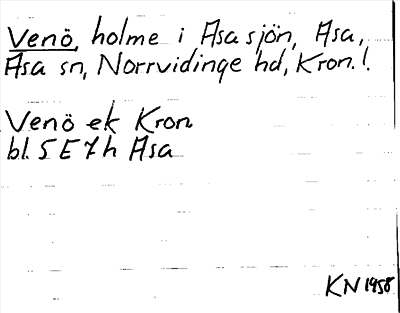 Venö, holme i Asasjön, Asa,
Asa sn, Norrvidinge hd, Kron. l.
Venö ek Kron
bl. 5 E 7 h Asa
KN 1958